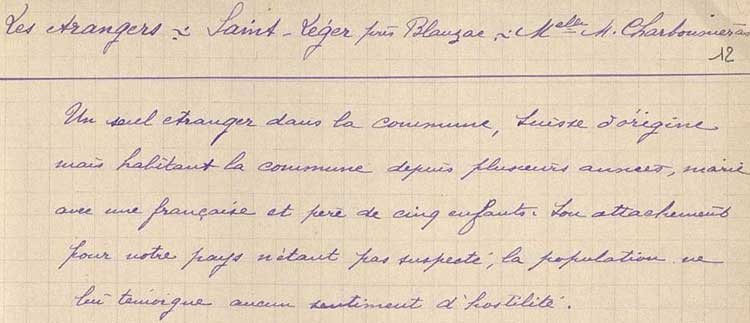 Les étrangers à Saint-Léger près Blanzac - Melle M. Charbonnier
12
Un seul étranger dans la commune, Suisse d'origine
mais habitant la commune depuis plusieurs années, marié
avec une française et père de cinq enfants. Son attachement
pour notre pays n'étant pas suspecté, la population ne
lui témoigne aucun sentiment d'hostilité.